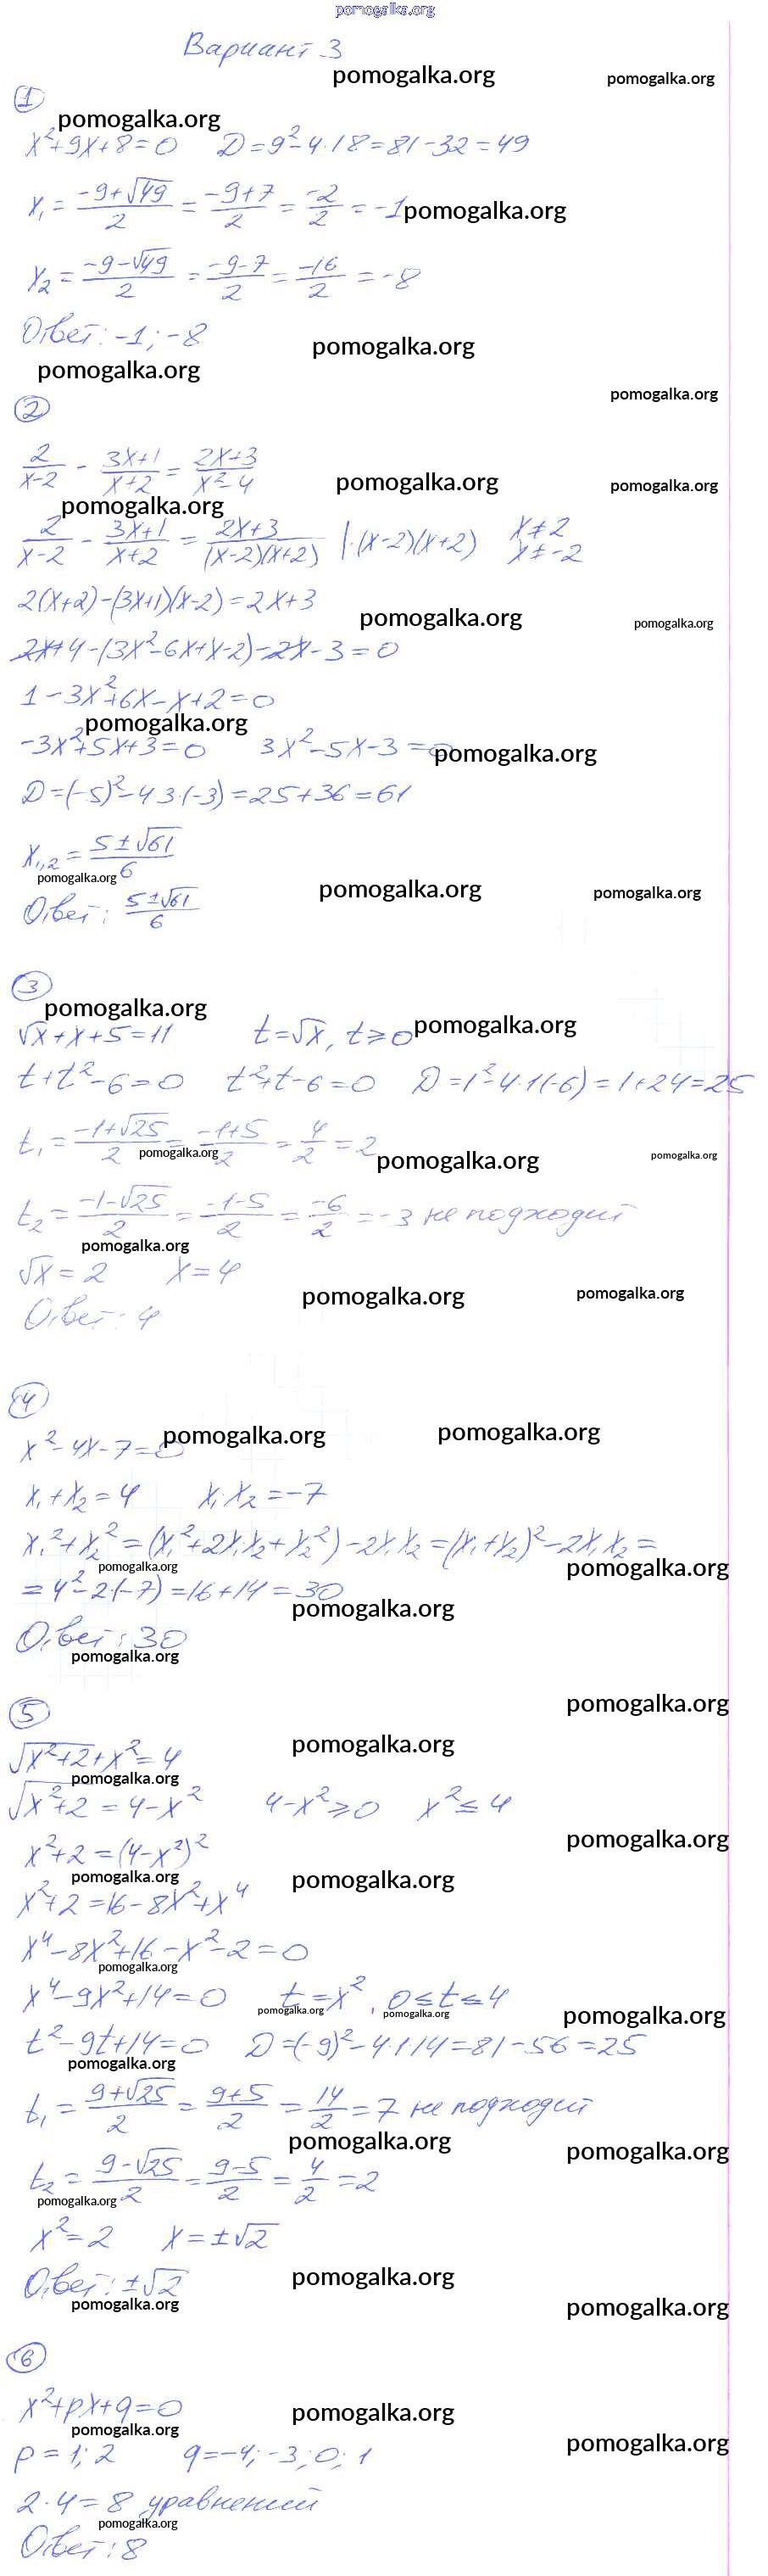 pomogalka.org
Вариант 3
pomogalka.org pomogalka.org
1
pomogalka.org
x²+9x+8=0 D=9²-4·1·8=81-32=49
x₁=(-9+√49)/2=(-9+7)/2=-2/2=-1 pomogalka.org
x₂=(-9-√49)/2=(-9-7)/2=-16/2=-8
Ответ: -1; -8
pomogalka.org
pomogalka.org
pomogalka.org
2
2/(x-2) - (3x+1)/(x+2) = (2x+3)/(x²-4)
pomogalka.org pomogalka.org
pomogalka.org
2/(x-2) - (3x+1)/(x+2) = (2x+3)/((x-2)(x+2)) |·(x-2)(x+2) x≠2
x≠-2
2(x+2)-(3x+1)(x-2)=2x+3
pomogalka.org pomogalka.org
2x+4-(3x²-6x+x-2)-2x-3=0
1-3x²+6x-x+2=0
pomogalka.org
-3x²+5x+3=0 3x²-5x-3=0 pomogalka.org
D=(-5)²-4·3·(-3)=25+36=61
x₁,₂=(5±√61)/6
pomogalka.org pomogalka.org pomogalka.org
Ответ: (5±√61)/6
3
pomogalka.org
√x+x+5=11 t=√x, t≥0 pomogalka.org
t+t²-6=0 t²+t-6=0 D=1²-4·1·(-6)=1+24=25
t₁=(-1+√25)/2=(-1+5)/2=4/2=2
pomogalka.org pomogalka.org pomogalka.org
t₂=(-1-√25)/2=(-1-5)/2=-6/2=-3 не подходит
pomogalka.org
√x=2 x=4
pomogalka.org pomogalka.org
Ответ: 4
4
pomogalka.org pomogalka.org
x²-4x-7=0
x₁+x₂=4 x₁x₂=-7
x₁²+x₂²=(x₁²+2x₁x₂+x₂²)-2x₁x₂=(x₁+x₂)²-2x₁x₂=
pomogalka.org pomogalka.org
=4²-2·(-7)=16+14=30
pomogalka.org
Ответ: 30
pomogalka.org
pomogalka.org
5
√(x²+2)+x²=4 pomogalka.org
pomogalka.org
√(x²+2)=4-x² 4-x²≥0 x²≤4
pomogalka.org
x²+2=(4-x²)²
pomogalka.org pomogalka.org
x²+2=16-8x²+x⁴
x⁴-8x²+16-x²-2=0
pomogalka.org
x⁴-9x²+14=0 t=x², 0≤t≤4
pomogalka.org pomogalka.org pomogalka.org
t²-9t+14=0 D=(-9)²-4·1·14=81-56=25
pomogalka.org
t₁=(9+√25)/2=(9+5)/2=14/2=7 не подходит
pomogalka.org pomogalka.org
t₂=(9-√25)/2=(9-5)/2=4/2=2
pomogalka.org
x²=2 x=±√2
Ответ: ±√2 pomogalka.org
pomogalka.org pomogalka.org
6
x²+px+q=0 pomogalka.org
pomogalka.org pomogalka.org
p=1; 2 q=-4; -3; 0; 1
2·4=8 уравнений
pomogalka.org
Ответ: 8